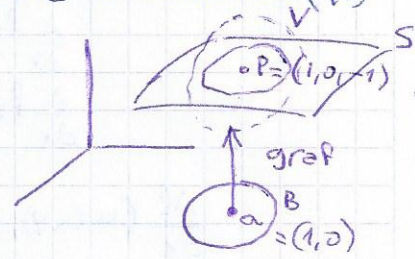 S
P=(1,0,-1)
graf
a B
=(1,0)